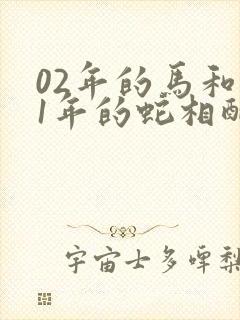 02年的馬和
1年的蛇相配
宇宙士多啤梨